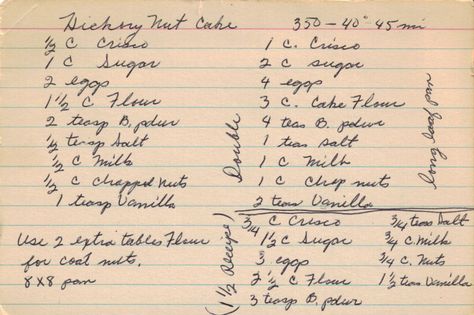 Hickory Nut Cake 350-40° 45 mi
½ C Crisco
1 C Sugar
2 eggs
1½ C Flour
2 teasp B. pdwr
½ teasp Salt
½ C Milk
½ C chopped nuts
1 teasp Vanilla
Use 2 extra tables Flour
for coat nuts.
8x8 pan
Double
1 C. Crisco
2 C sugar
4 eggs
3 C. Cake Flour
4 teas B. pdwr
1 teas salt
1 C Milk
1 C chop nuts
2 teas Vanilla
long loaf pan
(1½ Recipe)
¾ C Crisco
1½ C Sugar
3 eggs
2½ C Flour
3 teasp B. pdwr
¾ teas Salt
¾ C. Milk
¾ C. Nuts
1½ teas Vanilla